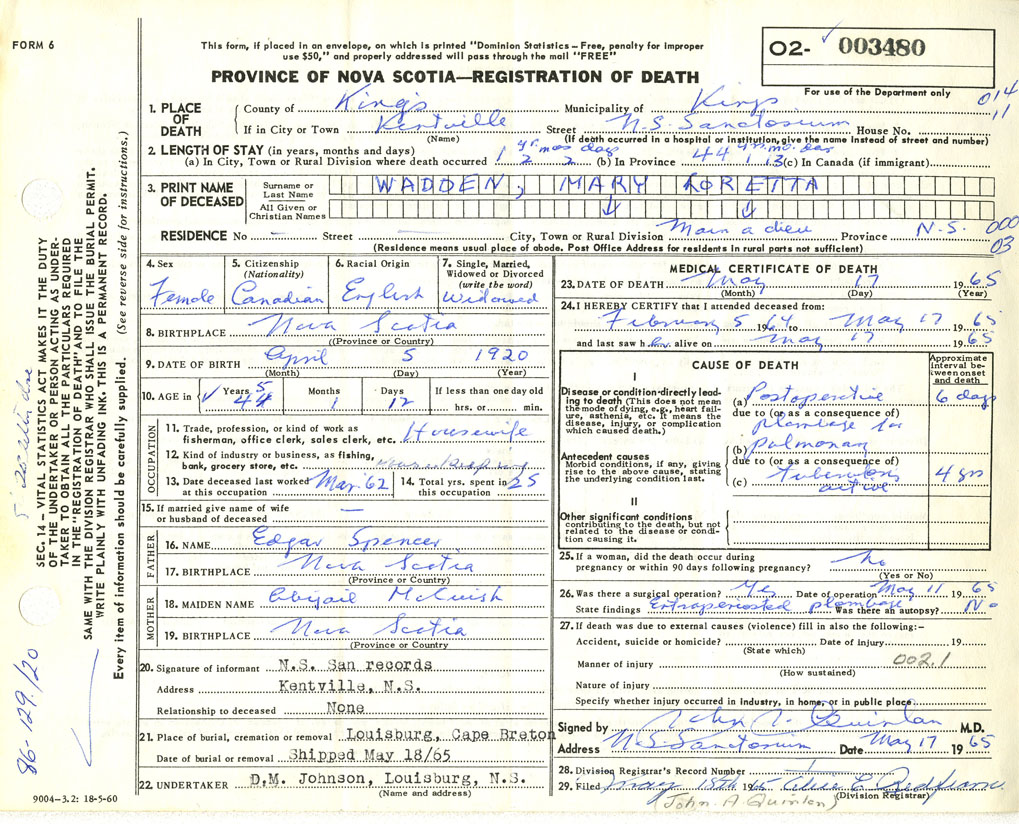 FORM 6
This form, if placed in an envelope, on which is printed "Dominion Statistics – Free, penalty for improper
use $50," and properly addressed will pass through the mail "FREE"
PROVINCE OF NOVA SCOTIA—REGISTRATION OF DEATH
O2- 003480
For use of the Department only
014
11
1. PLACE OF DEATH
County of Kings Municipality of Kings
If in City or Town Kentville Street N.S. Sanatorium House No.
(Name) (If death occurred in a hospital or institution, give the name instead of street and number)
2. LENGTH OF STAY (in years, months and days)
yr. mos days yrs. mo. day
(a) In City, Town or Rural Division where death occurred 1 2 2 (b) In Province 44 1 13 (c) In Canada (if immigrant)
3. PRINT NAME OF DECEASED
Surname or Last Name WADDEN, MARY LORETTA
All Given or Christian Names
RESIDENCE No — Street — City, Town or Rural Division Main a dieu Province N.S.
000
03
(Residence means usual place of abode. Post Office Address for residents in rural parts not sufficient)
4. Sex
Female
5. Citizenship
(Nationality)
Canadian
6. Racial Origin
English
7. Single, Married, Widowed or Divorced
(write the word)
Widowed
8. BIRTHPLACE Nova Scotia
(Province or Country)
9. DATE OF BIRTH April 5 1920
(Month) (Day) (Year)
10. AGE in
Years Months Days If less than one day old
5
44 1 12 hrs. or min.
OCCUPATION
11. Trade, profession, or kind of work as
fisherman, office clerk, sales clerk, etc. Housewife
12. Kind of industry or business, as fishing,
bank, grocery store, etc.
13. Date deceased last worked at this occupation Mar '62
14. Total yrs. spent in this occupation 25
15. If married give name of wife
or husband of deceased —
FATHER
16. NAME Edgar Spencer
17. BIRTHPLACE Nova Scotia
(Province or Country)
MOTHER
18. MAIDEN NAME Abigail McCuish
19. BIRTHPLACE Nova Scotia
(Province or Country)
20. Signature of informant N.S. San records
Address Kentville, N.S.
Relationship to deceased None
21. Place of burial, cremation or removal Louisburg, Cape Breton
Date of burial or removal Shipped May 18/65
22. UNDERTAKER D.M. Johnson, Louisburg, N.S.
(Name and address)
MEDICAL CERTIFICATE OF DEATH
23. DATE OF DEATH May 17 1965
(Month) (Day) (Year)
24. I HEREBY CERTIFY that I attended deceased from:
February 5 1964 to May 17 1965
and last saw her alive on May 17 1965
CAUSE OF DEATH
Approximate interval between onset and death
I
Disease or condition directly leading to death (This does not mean the mode of dying, e.g., heart failure, asthenia, etc. It means the disease, injury, or complication which caused death.)
(a) Postoperative 6 days
due to (or as a consequence of)
plombage for
(b) pulmonary
Antecedent causes
Morbid conditions, if any, giving rise to the above cause, stating the underlying condition last.
due to (or as a consequence of)
(c) tuberculosis 4 yrs
active
II
Other significant conditions
contributing to the death, but not related to the disease or condition causing it.
25. If a woman, did the death occur during
pregnancy or within 90 days following pregnancy? No
(Yes or No)
26. Was there a surgical operation? Yes Date of operation May 11 1965
State findings Extraperiosteal plombage Was there an autopsy? No
27. If death was due to external causes (violence) fill in also the following:–
Accident, suicide or homicide? Date of injury 19
(State which)
Manner of injury 002.1
(How sustained)
Nature of injury
Specify whether injury occurred in industry, in home, or in public place
Signed by John A. Quinlan M.D.
Address N.S. Sanatorium Date May 17 1965
28. Division Registrar's Record Number
29. Filed May 18th 1965
(Division Registrar)
(John A Quinlan)
9004-3.2: 18-5-60
SEC. 14 – VITAL STATISTICS ACT MAKES IT THE DUTY
OF THE UNDERTAKER OR PERSON ACTING AS UNDER-
TAKER TO OBTAIN ALL THE PARTICULARS REQUIRED
IN THE "REGISTRATION OF DEATH" AND TO FILE THE
SAME WITH THE DIVISION REGISTRAR WHO SHALL ISSUE THE BURIAL PERMIT.
WRITE PLAINLY WITH UNFADING INK. THIS IS A PERMANENT RECORD.
Every item of information should be carefully supplied. (See reverse side for instructions.)
86-129./20